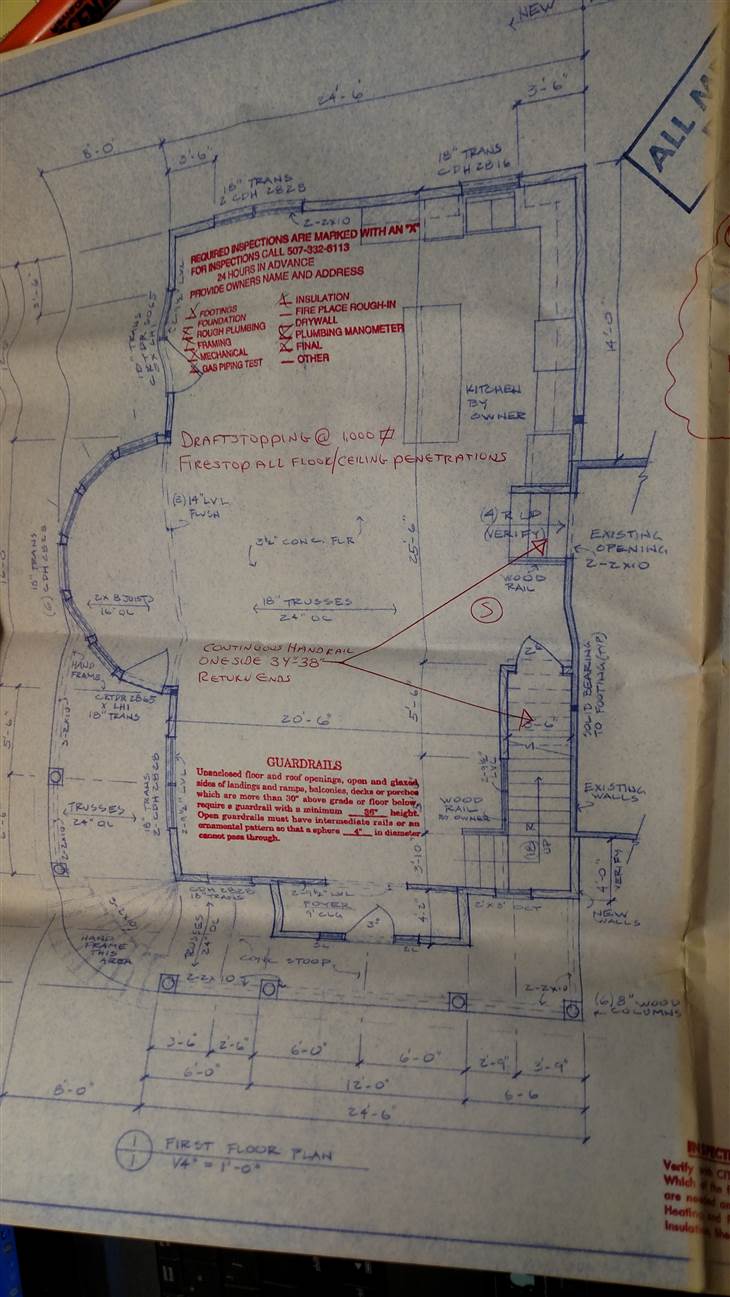 NEW
24'-6"
3'-6"
8'-0"
3'-6"
ALL M
18" TRANS
2 CDH 2828
18" TRANS
CDH 2816
2-2x10
REQUIRED INSPECTIONS ARE MARKED WITH AN "X"
FOR INSPECTIONS CALL 507-332-6113
24 HOURS IN ADVANCE
PROVIDE OWNERS NAME AND ADDRESS
FOOTINGS
FOUNDATION
ROUGH PLUMBING
FRAMING
MECHANICAL
GAS PIPING TEST
INSULATION
FIRE PLACE ROUGH-IN
DRYWALL
PLUMBING MANOMETER
FINAL
OTHER
14'-0"
KITCHEN
BY
OWNER
DRAFTSTOPPING @ 1,000
FIRESTOP ALL FLOOR/CEILING PENETRATIONS
(3) 14" LVL
FLUSH
3½" CONC. FLR
25'-6"
(4) R UP
(VERIFY)
EXISTING
OPENING
2-2x10
WOOD
RAIL
18" TRANS
(6) CDH 2828
2x8 JOIST
16" OC
18" TRUSSES
24" OC
S
CONTINUOUS HANDRAIL
ONE SIDE 34"-38"
RETURN ENDS
HAND
FRAME
CRTDR 2865
x LHI
18" TRANS
SOLID BEARING
TO FOOTING (TYP)
5'-6"
20'-6"
5'-6"
GUARDRAILS
Unenclosed floor and roof openings, open and glazed
sides of landings and ramps, balconies, decks or porches
which are more than 30" above grade or floor below,
require a guardrail with a minimum 36" height.
Open guardrails must have intermediate rails or an
ornamental pattern so that a sphere 4" in diameter
cannot pass through.
TRUSSES
24" OC
2-2x10
WOOD
RAIL
BY OWNER
EXISTING
WALLS
UP
3'-10"
4'-0"
VERIFY
CDH 2828
18" TRANS
2-9½" LVL
FOYER
9' CLG
4'-2"
3°
2'x3' OCT
NEW
WALLS
HAND
FRAME
THIS
AREA
TRUSSES
24" OC
CONC STOOP
2-2x10
2-2x10
(6) 8" WOOD
COLUMNS
3'-6"
2'-6"
6'-0"
6'-0"
2'-9"
3'-9"
6'-0"
12'-0"
6-6
8'-0"
24'-6"
1
1
FIRST FLOOR PLAN
1/4" = 1'-0"
Verify
Which
are
Heating